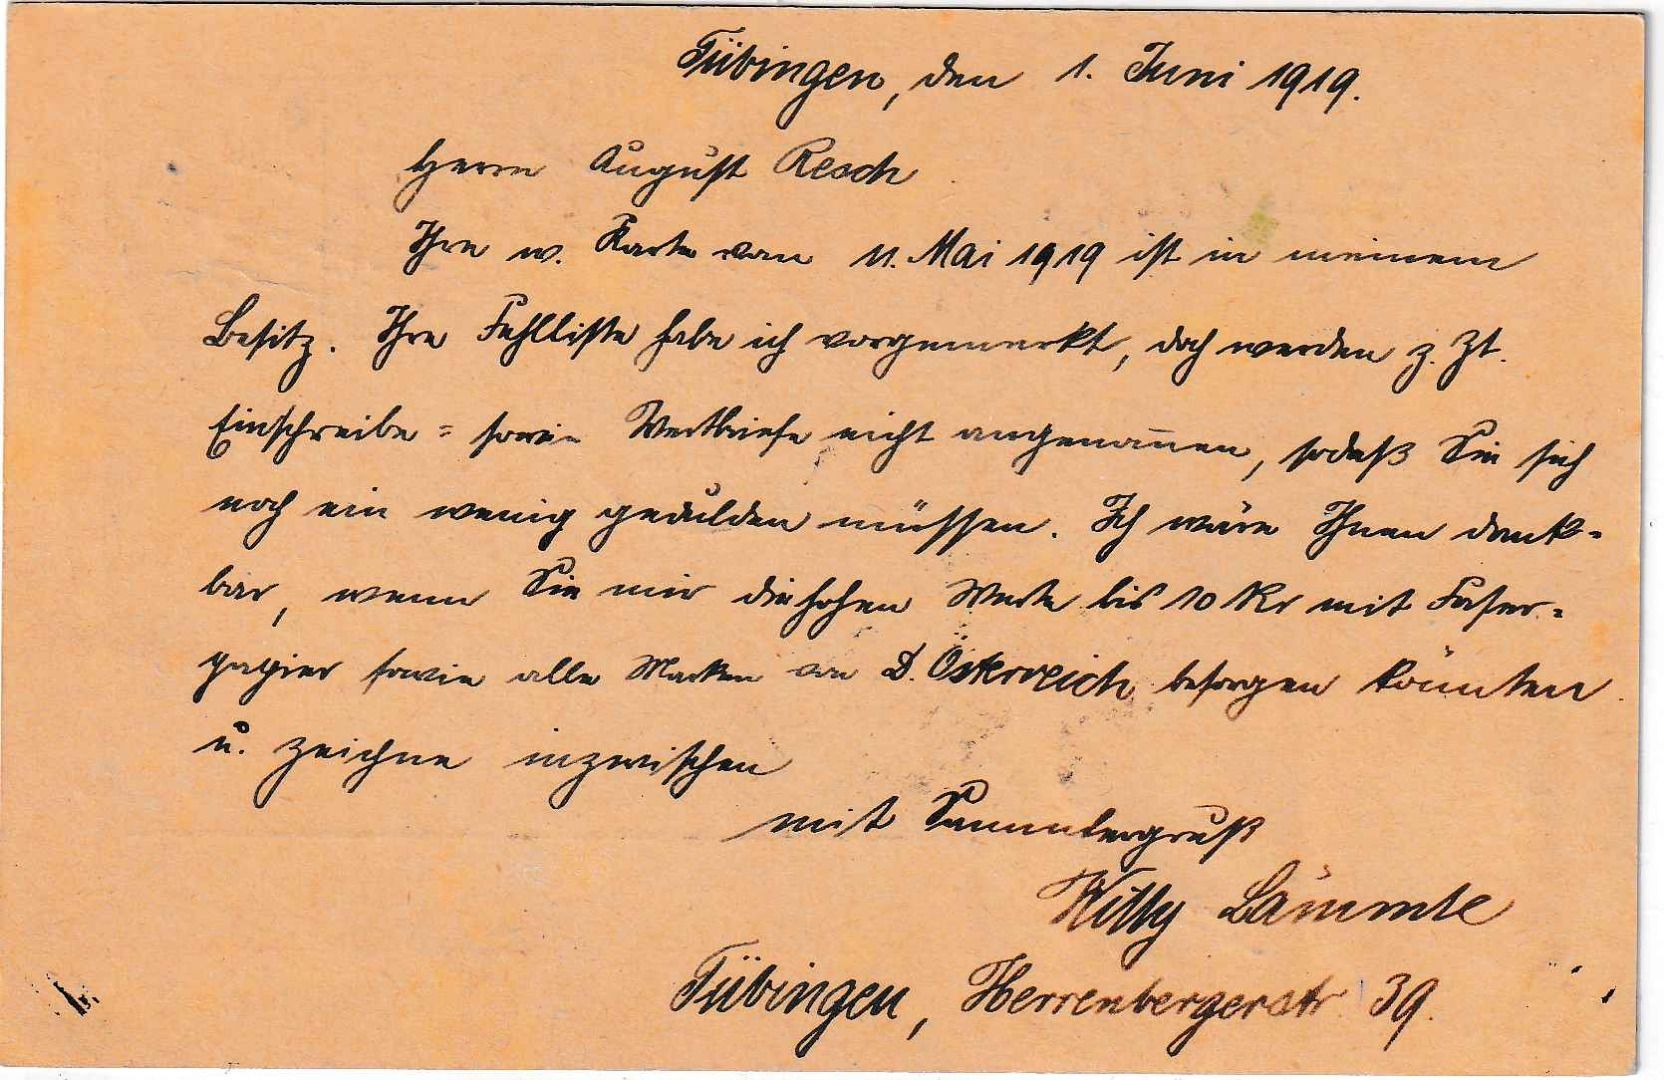 Tübingen, den 1. Juni 1919.
Herrn August Resch
Ihre w. Karte vom 11. Mai 1919 ist in meinem
Besitz. Ihre Fehlliste habe ich vorgemerkt, doch werden z. Zt.
Einschreibe= sowie Wertbriefe nicht angenom̅en, sodaß Sie sich
noch ein wenig gedulden müssen. Ich wäre Ihnen dank=
bar, wenn Sie mir die hohen Werte bis 10 Kr mit Faser=
papier sowie alle Marken von D. Österreich besorgen könnten
u. zeichne inzwischen
mit Sammlergruß
Willy Lämmle
Tübingen, Herrenbergerstr 39.